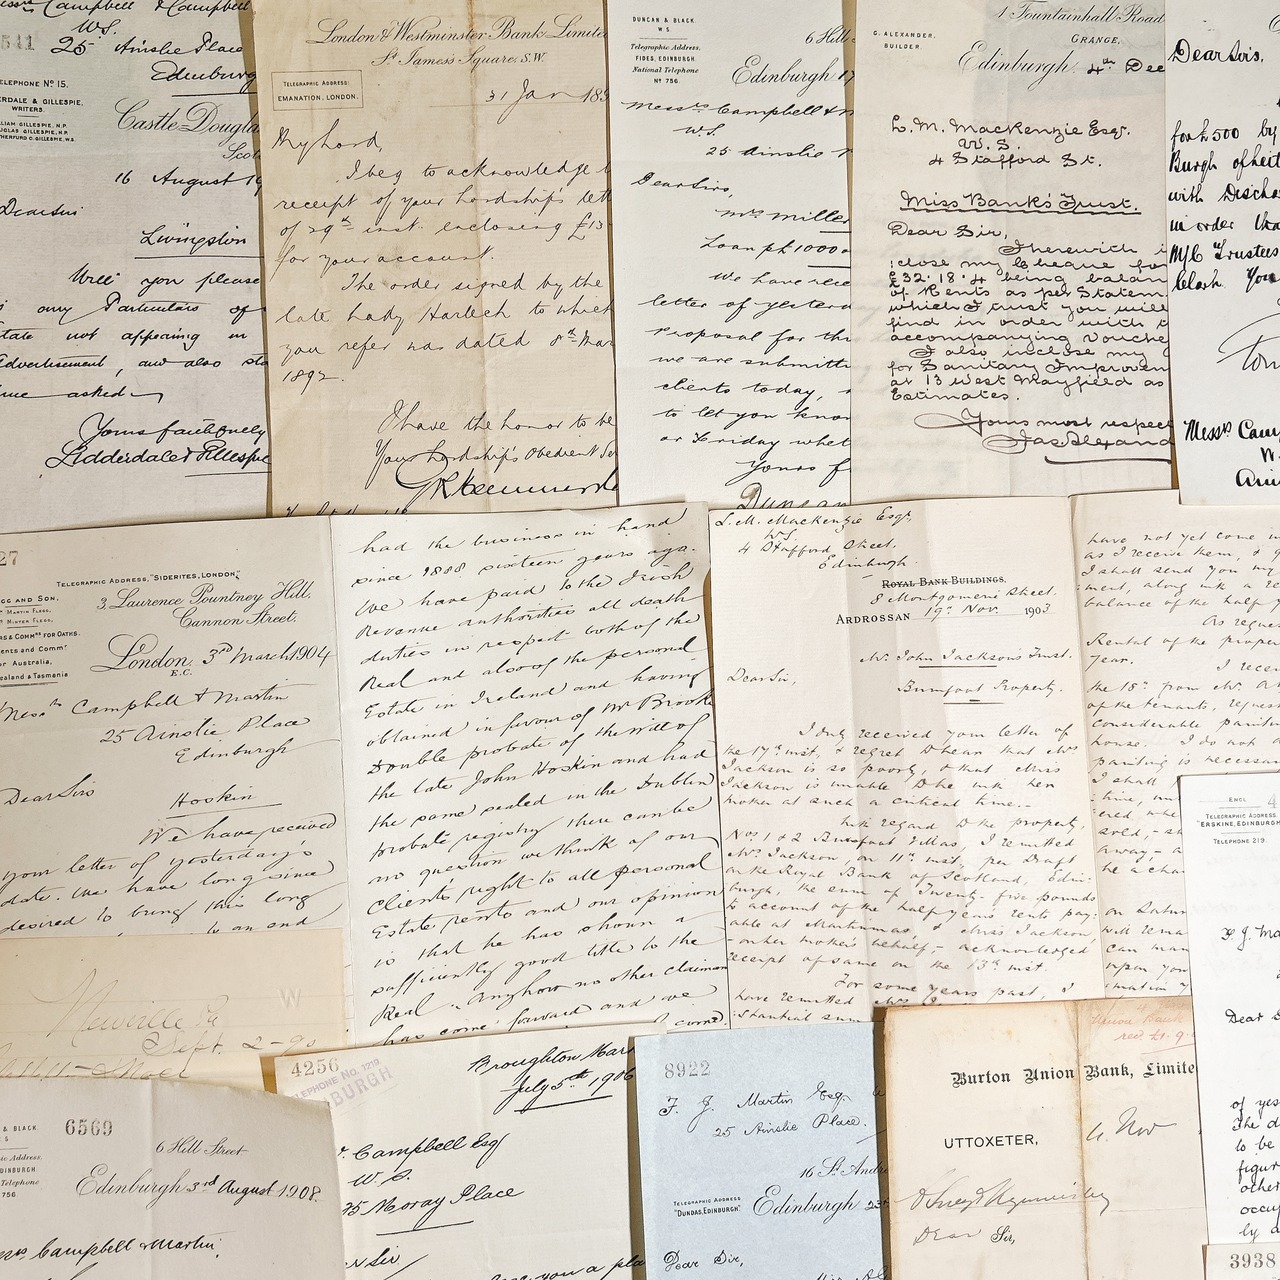 Campbell & Campbell
W.S.
25 Ainslie Place
Edinburg
541
ELEPHONE Nº 15.
ERDALE & GILLESPIE,
WRITERS.
LLIAM GILLESPIE, N.P.
UGLAS GILLESPIE, N.P.
Castle Dougla
Sco
16 August 19
Dear Sirs
Livingston
Will you please
any Particulars of
tate not appearing in
Advertisement, and also sta
asked
Yours faithfully
Lidderdale & Gillespie
London & Westminster Bank Limite
St James's Square. S.W.
TELEGRAPHIC ADDRESS:
EMANATION, LONDON.
31 Jan 189
My Lord,
I beg to acknowledge
receipt of your Lordship's lett
of 29th inst. enclosing £13
for your account.
The order signed by the
late Lady Harlech to which
you refer was dated 8th Mar
1892.
I have the honor to be
Your Lordship's Obedient Se
DUNCAN & BLACK.
W S
Telegraphic Address:
FIDES, EDINBURGH.
National Telephone
Nº 756
6 Hill
Edinburgh 17
Messrs Campbell &
W.S.
25 Ainslie
Dear Sirs,
Mrs Mille
Loan of £1000
We have rece
letter of yesterd
proposal for th
we are submitti
clients today,
to let you know
or Friday whet
Yours f
Duncan
1 Fountainhall Road
GRANGE,
G. ALEXANDER,
BUILDER.
Edinburgh, 4th Dec
L. M. Mackenzie Esq.
W. S.
4 Stafford St.
Miss Bank's Trust.
Dear Sir,
Therewith i
close my Cheque for
£32.18.4 being balan
of Rents as per Statem
which I trust you will
find in order with t
accompanying vouche
I also inclose my
for Sanitary Improvem
at 13 West Mayfield as
Estimates.
Yours most respec
Jas Alexand
Dear Sirs,
for £500 by
Burgh of Leit
with Discha
in order tha
M/C Trustees
Clark. You
Messrs Cam
W.
Ain
27
TELEGRAPHIC ADDRESS, "SIDERITES, LONDON,"
GG AND SON,
MARTIN FLEGG,
MINTER FLEGG,
RS & COMMRS FOR OATHS.
ents and Commrs
or Australia,
ealand & Tasmania
3, Laurence Pountney Hill,
Cannon Street.
London, 3rd March 1904
E.C.
Messrs Campbell & Martin
25 Ainslie Place
Edinburgh
Dear Sirs
Hoskin
We have received
your letter of yesterday's
date. We have long since
desired to bring this long
to an end
had the business in hand
since 1888 sixteen years ago.
We have paid to the Irish
Revenue authorities all death
duties in respect both of the
Real and also of the personal
Estate in Ireland and having
obtained in favour of Mr Brooke
Double probate of the will of
the late John Hoskin and had
the same sealed in the Dublin
probate registry there can be
no question we think of our
clients right to all personal
Estate rents and our opinion
is that he has shown a
sufficiently good title to the
Real "Anyhow no other claiman
has come forward and we
L. M. Mackenzie Esqr.
W.S.
4 Stafford Street,
Edinburgh
ROYAL BANK BUILDINGS.
8 Montgomerie Street.
ARDROSSAN 19th Nov. 1903
Mr. John Jackson's Trust.
Burnfoot Property.
Dear Sir,
I duly received your letter of
the 17th inst, & regret to hear that Mrs
Jackson is so poorly, & that Miss
Jackson is unable to be with her
mother at such a critical time.
With regard to the property,
Nos 1 & 2 Burnfoot Villas, I remitted
Mrs Jackson, on 11th inst, per Draft
on the Royal Bank of Scotland, Edin-
burgh, the sum of Twenty-five pounds
to account of the half year's rents pay-
able at Martinmas, & Miss Jackson,
on her mother's behalf, acknowledged
receipt of same on the 13th inst.
For some years past, I
have remitted
have not yet come in
as I receive them, &
I shall send you my
ment, along with a
balance of the half y
As reques
Rental of the proper
year.
I recei
the 18th from Mr.
of the tenants, reques
considerable painti
house. I do not
painting is necessar
I shall
time,
on Satur
will rema
can man
upon you
ENCL
TELEGRAPHIC ADDRESS
"ERSKINE, EDINBURGH
TELEPHONE 219.
F. J. Ma
Dear
of yes
The d
to be
figur
other
occup
by a
3938
Sept. 2-90
6569
& BLACK.
W S
Address,
EDINBURGH.
Telephone
756
6 Hill Street
Edinburgh 3rd August 1908
Messrs Campbell & Martin,
4256
TELEPHONE No. 1219
BURGH
Broughton Mar
July 5th 1906
Campbell Esq
W. S.
25 Moray Place
Sir
you a pla
8922
F. J. Martin Esq.
25 Ainslie Place.
16 St. Andr
TELEGRAPHIC ADDRESS
"DUNDAS, EDINBURGH"
Edinburgh 23
Dear Sir,
Union Bank
Burton Union Bank, Limite
UTTOXETER, 4. Nov
Dear Sir,